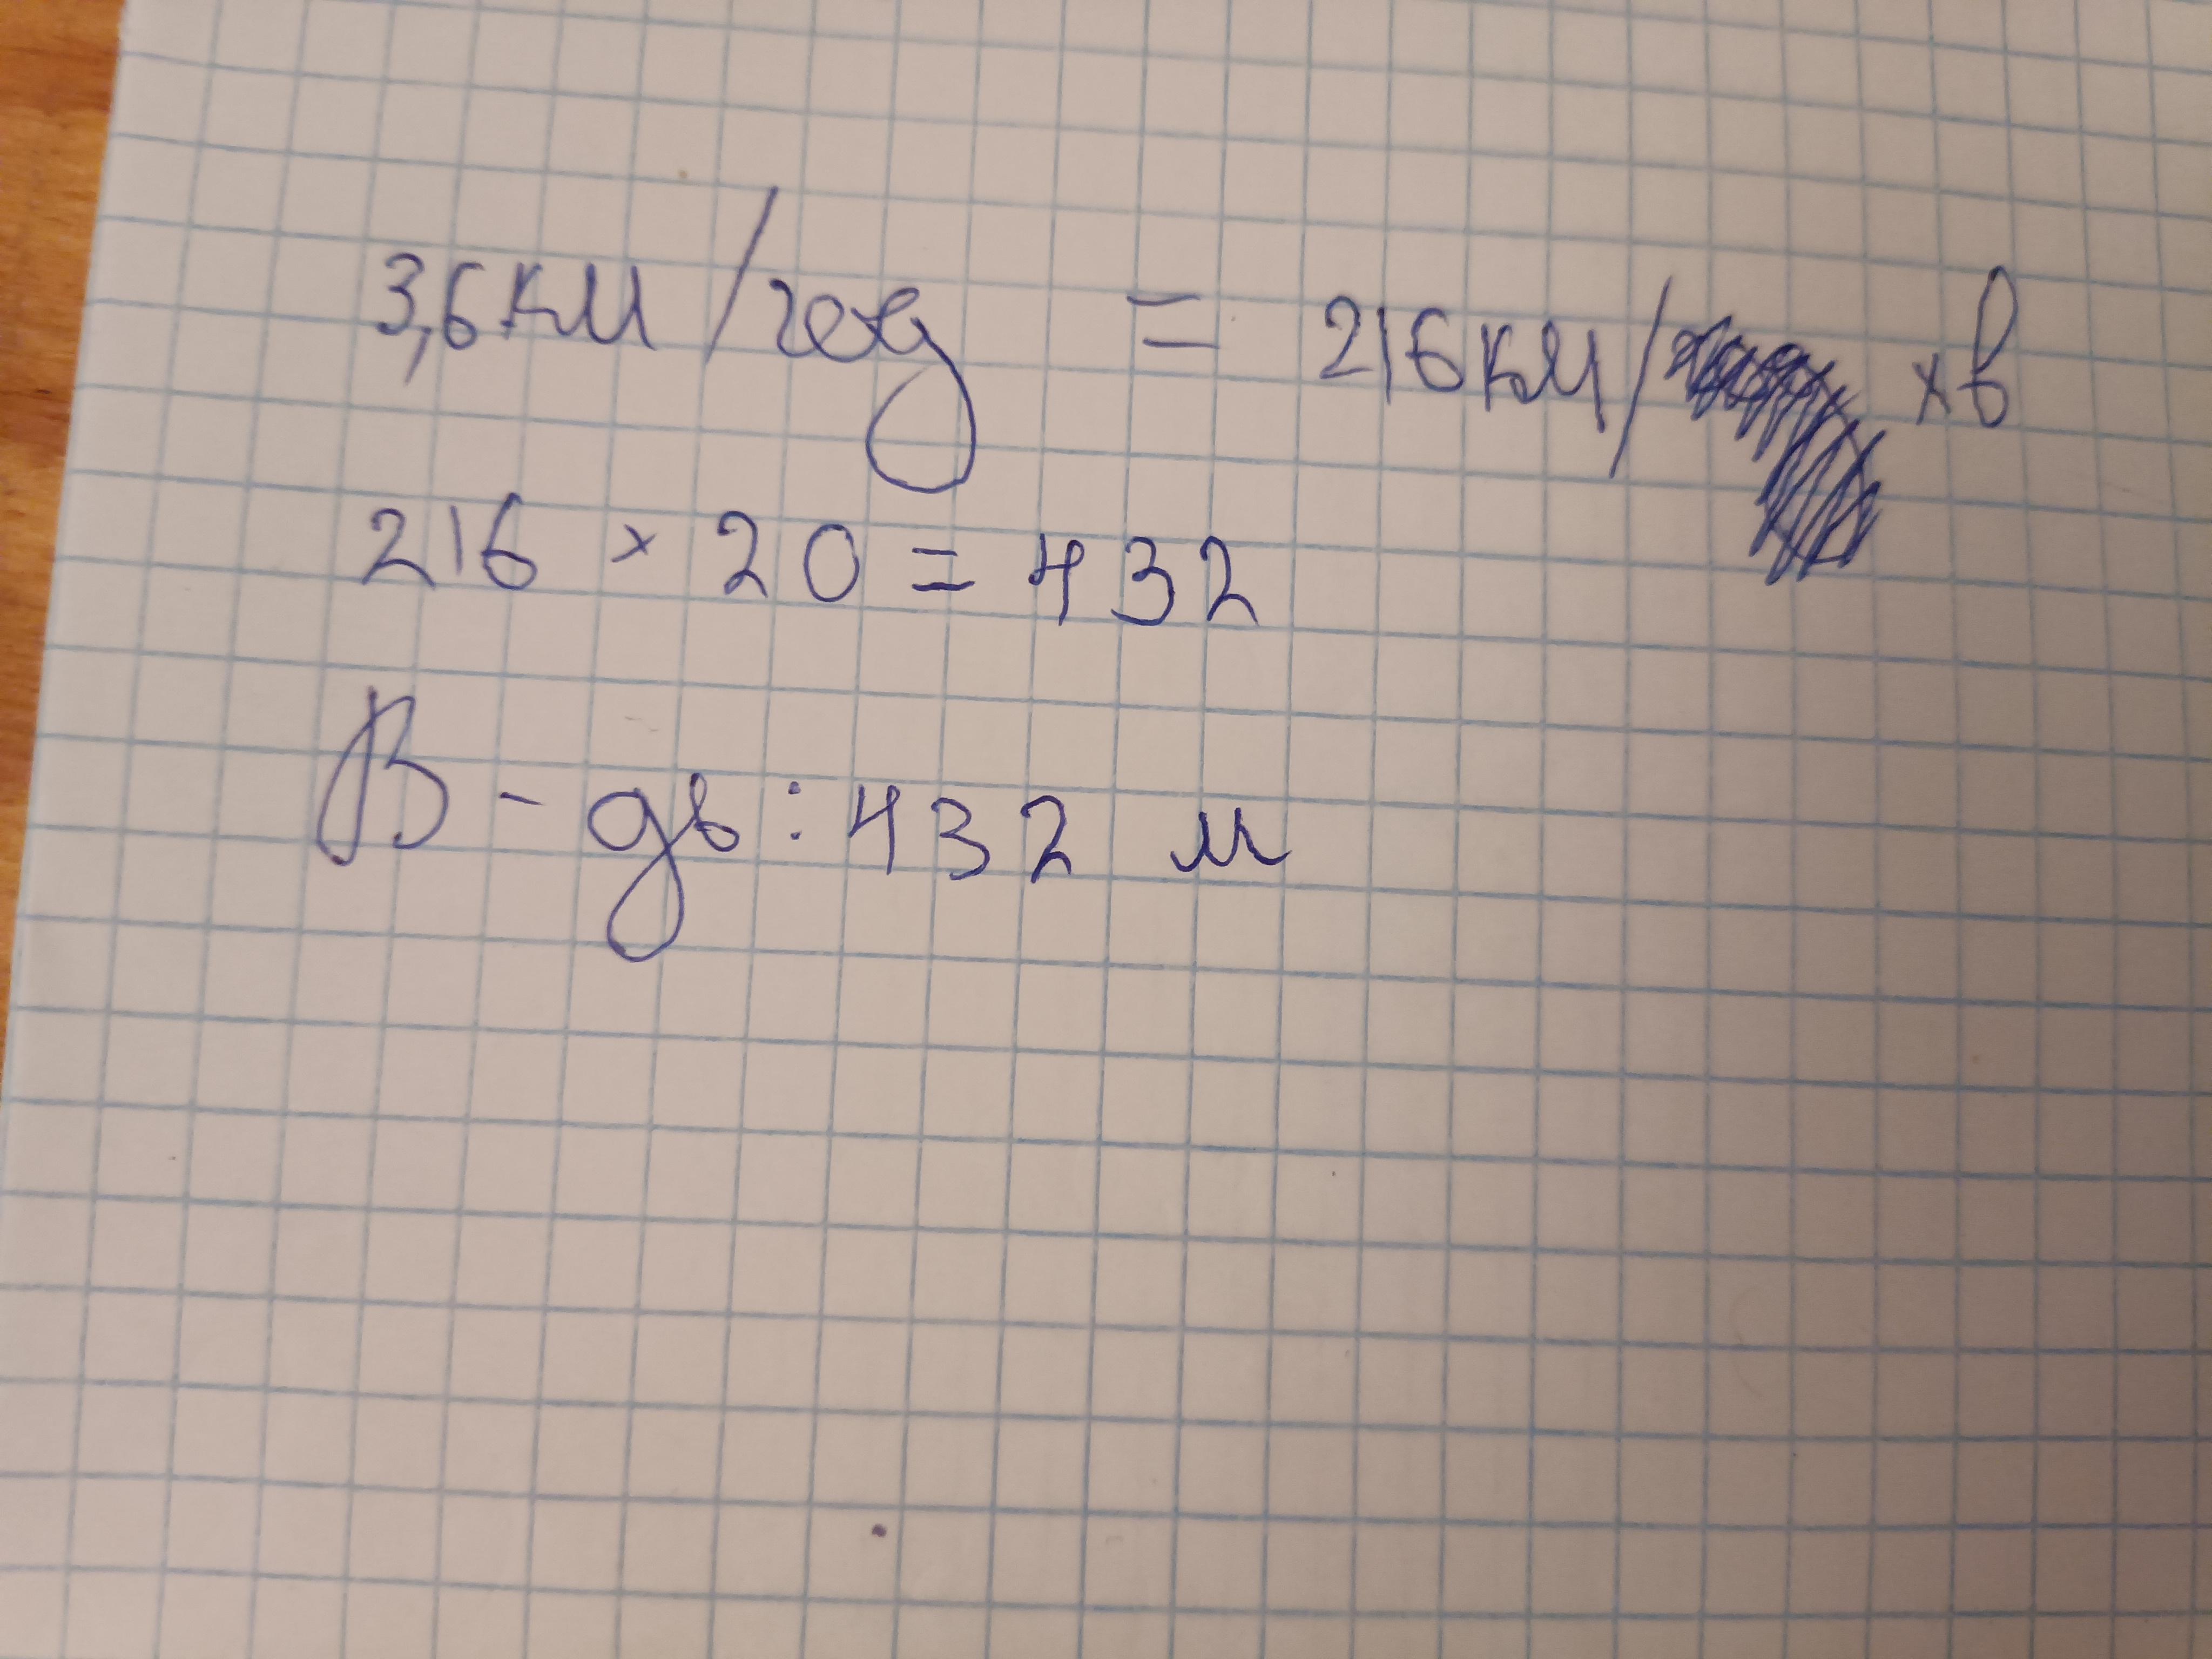 3,6км/год = 216км/хв
216 × 20 = 432
В-дь: 432 м